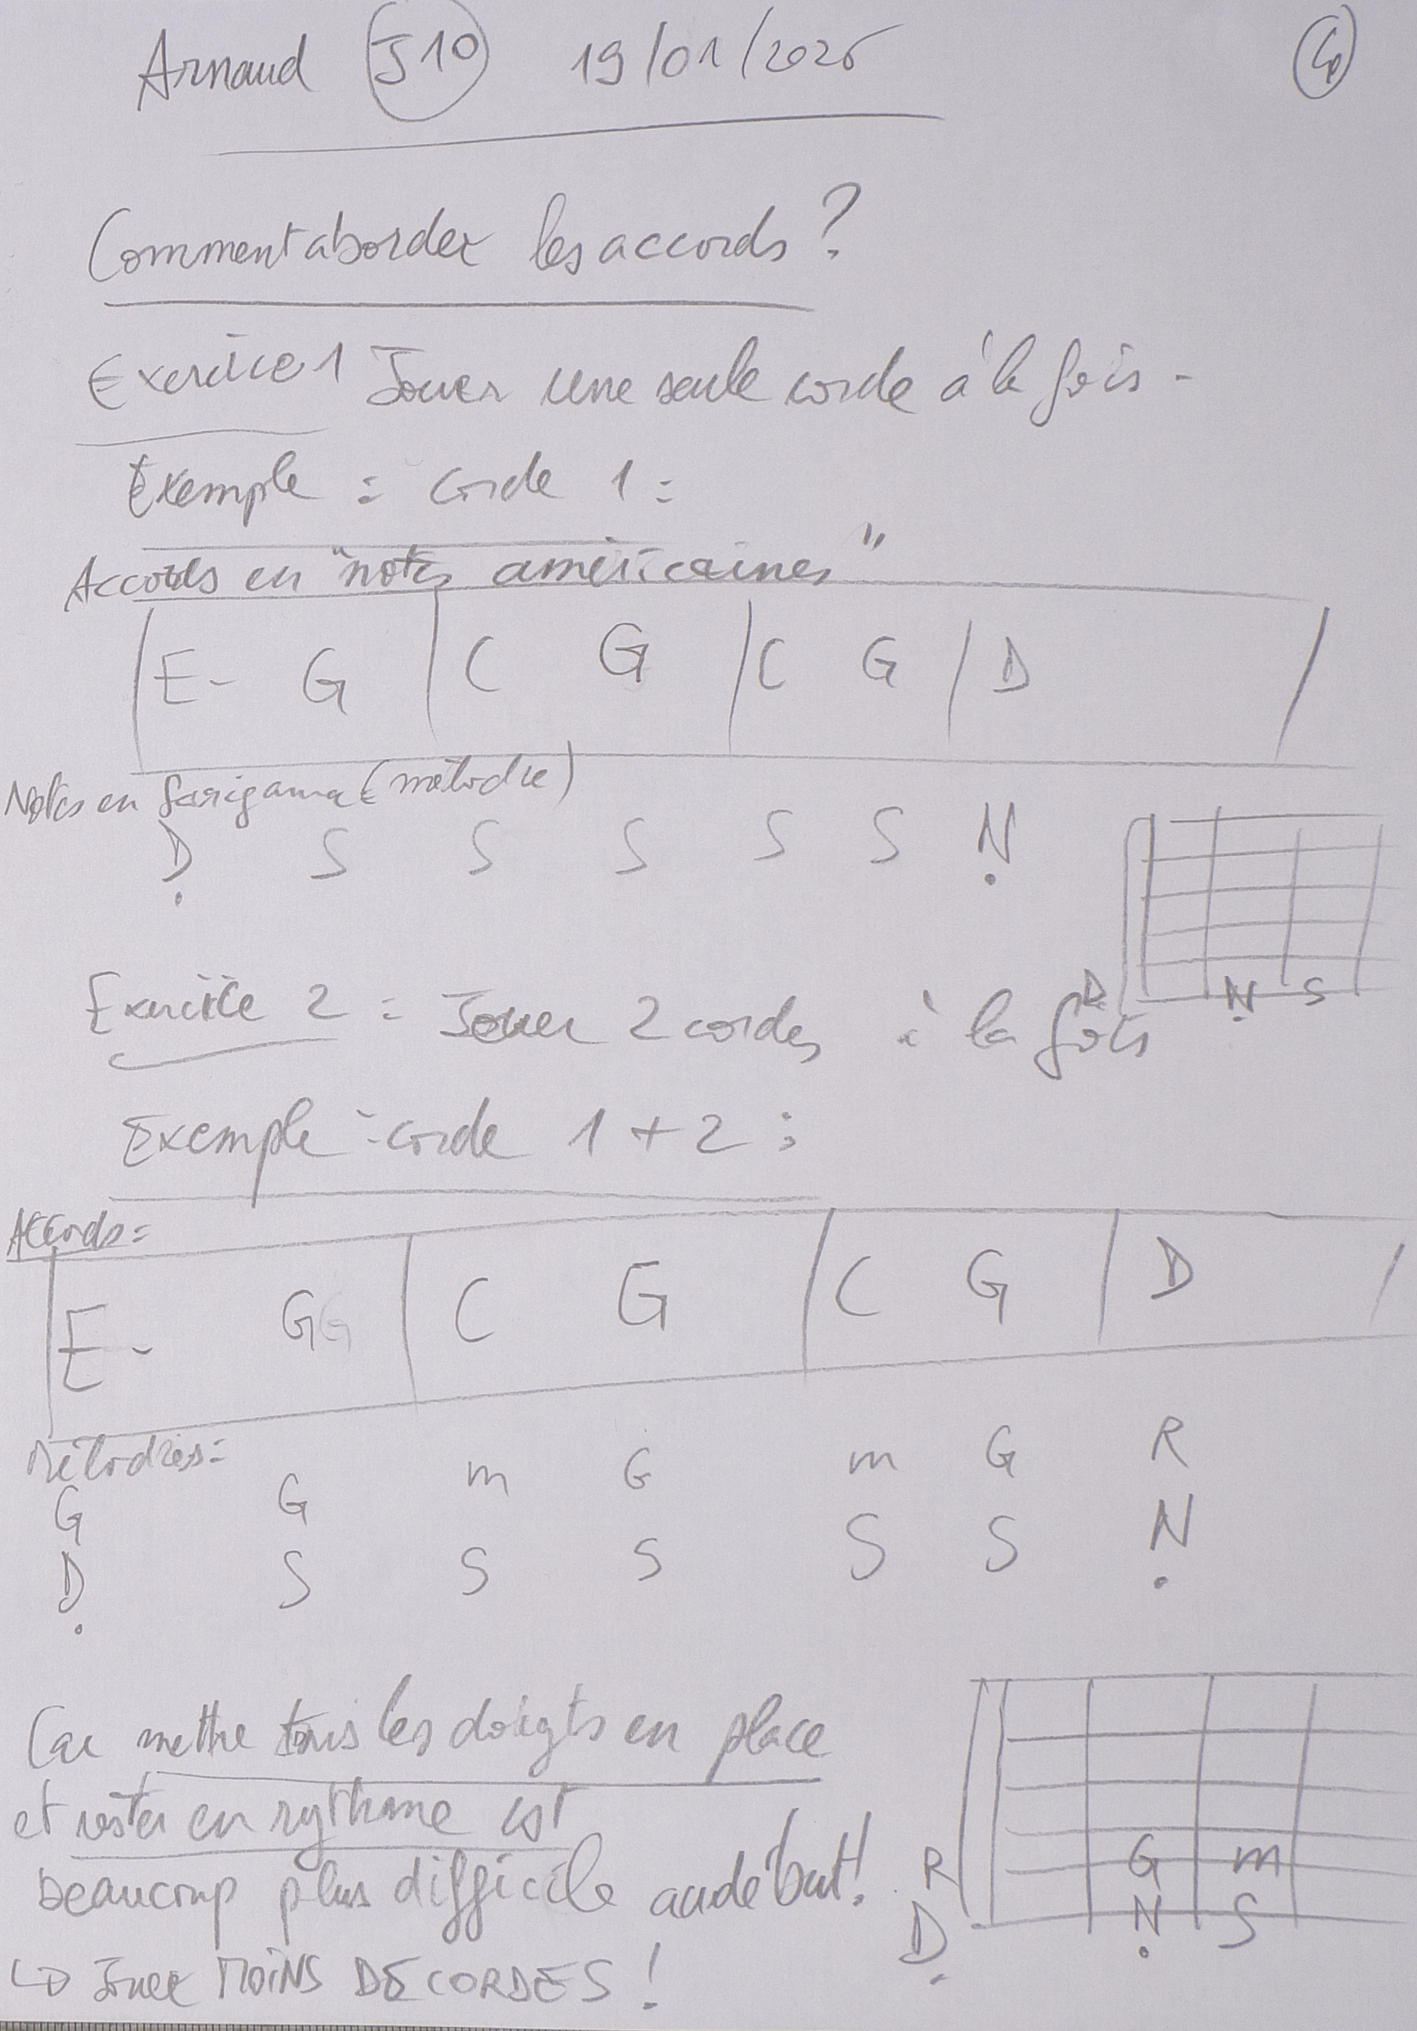 Arnaud J10 19/01/2026
Comment aborder les accords ?
Exercice 1 Jouer une seule corde à la fois -
Exemple = corde 1 :
Accords en "notes américaines"
| E- G | C G | C G | D |
Notes en sarigama (mélodie)
Ḍ S S S S S Ṇ
D Ṇ S
Exercice 2 = Jouer 2 cordes à la fois
Exemple = corde 1 + 2 :
Accords =
| E- G G | C G | C G | D |
Mélodies =
G G m G m G R
Ḍ S S S S S Ṇ
Car mettre tous les doigts en place
et rester en rythme est
beaucoup plus difficile au début !
↳ Jouer MOINS DE CORDES !
R G m
Ḍ Ṇ S